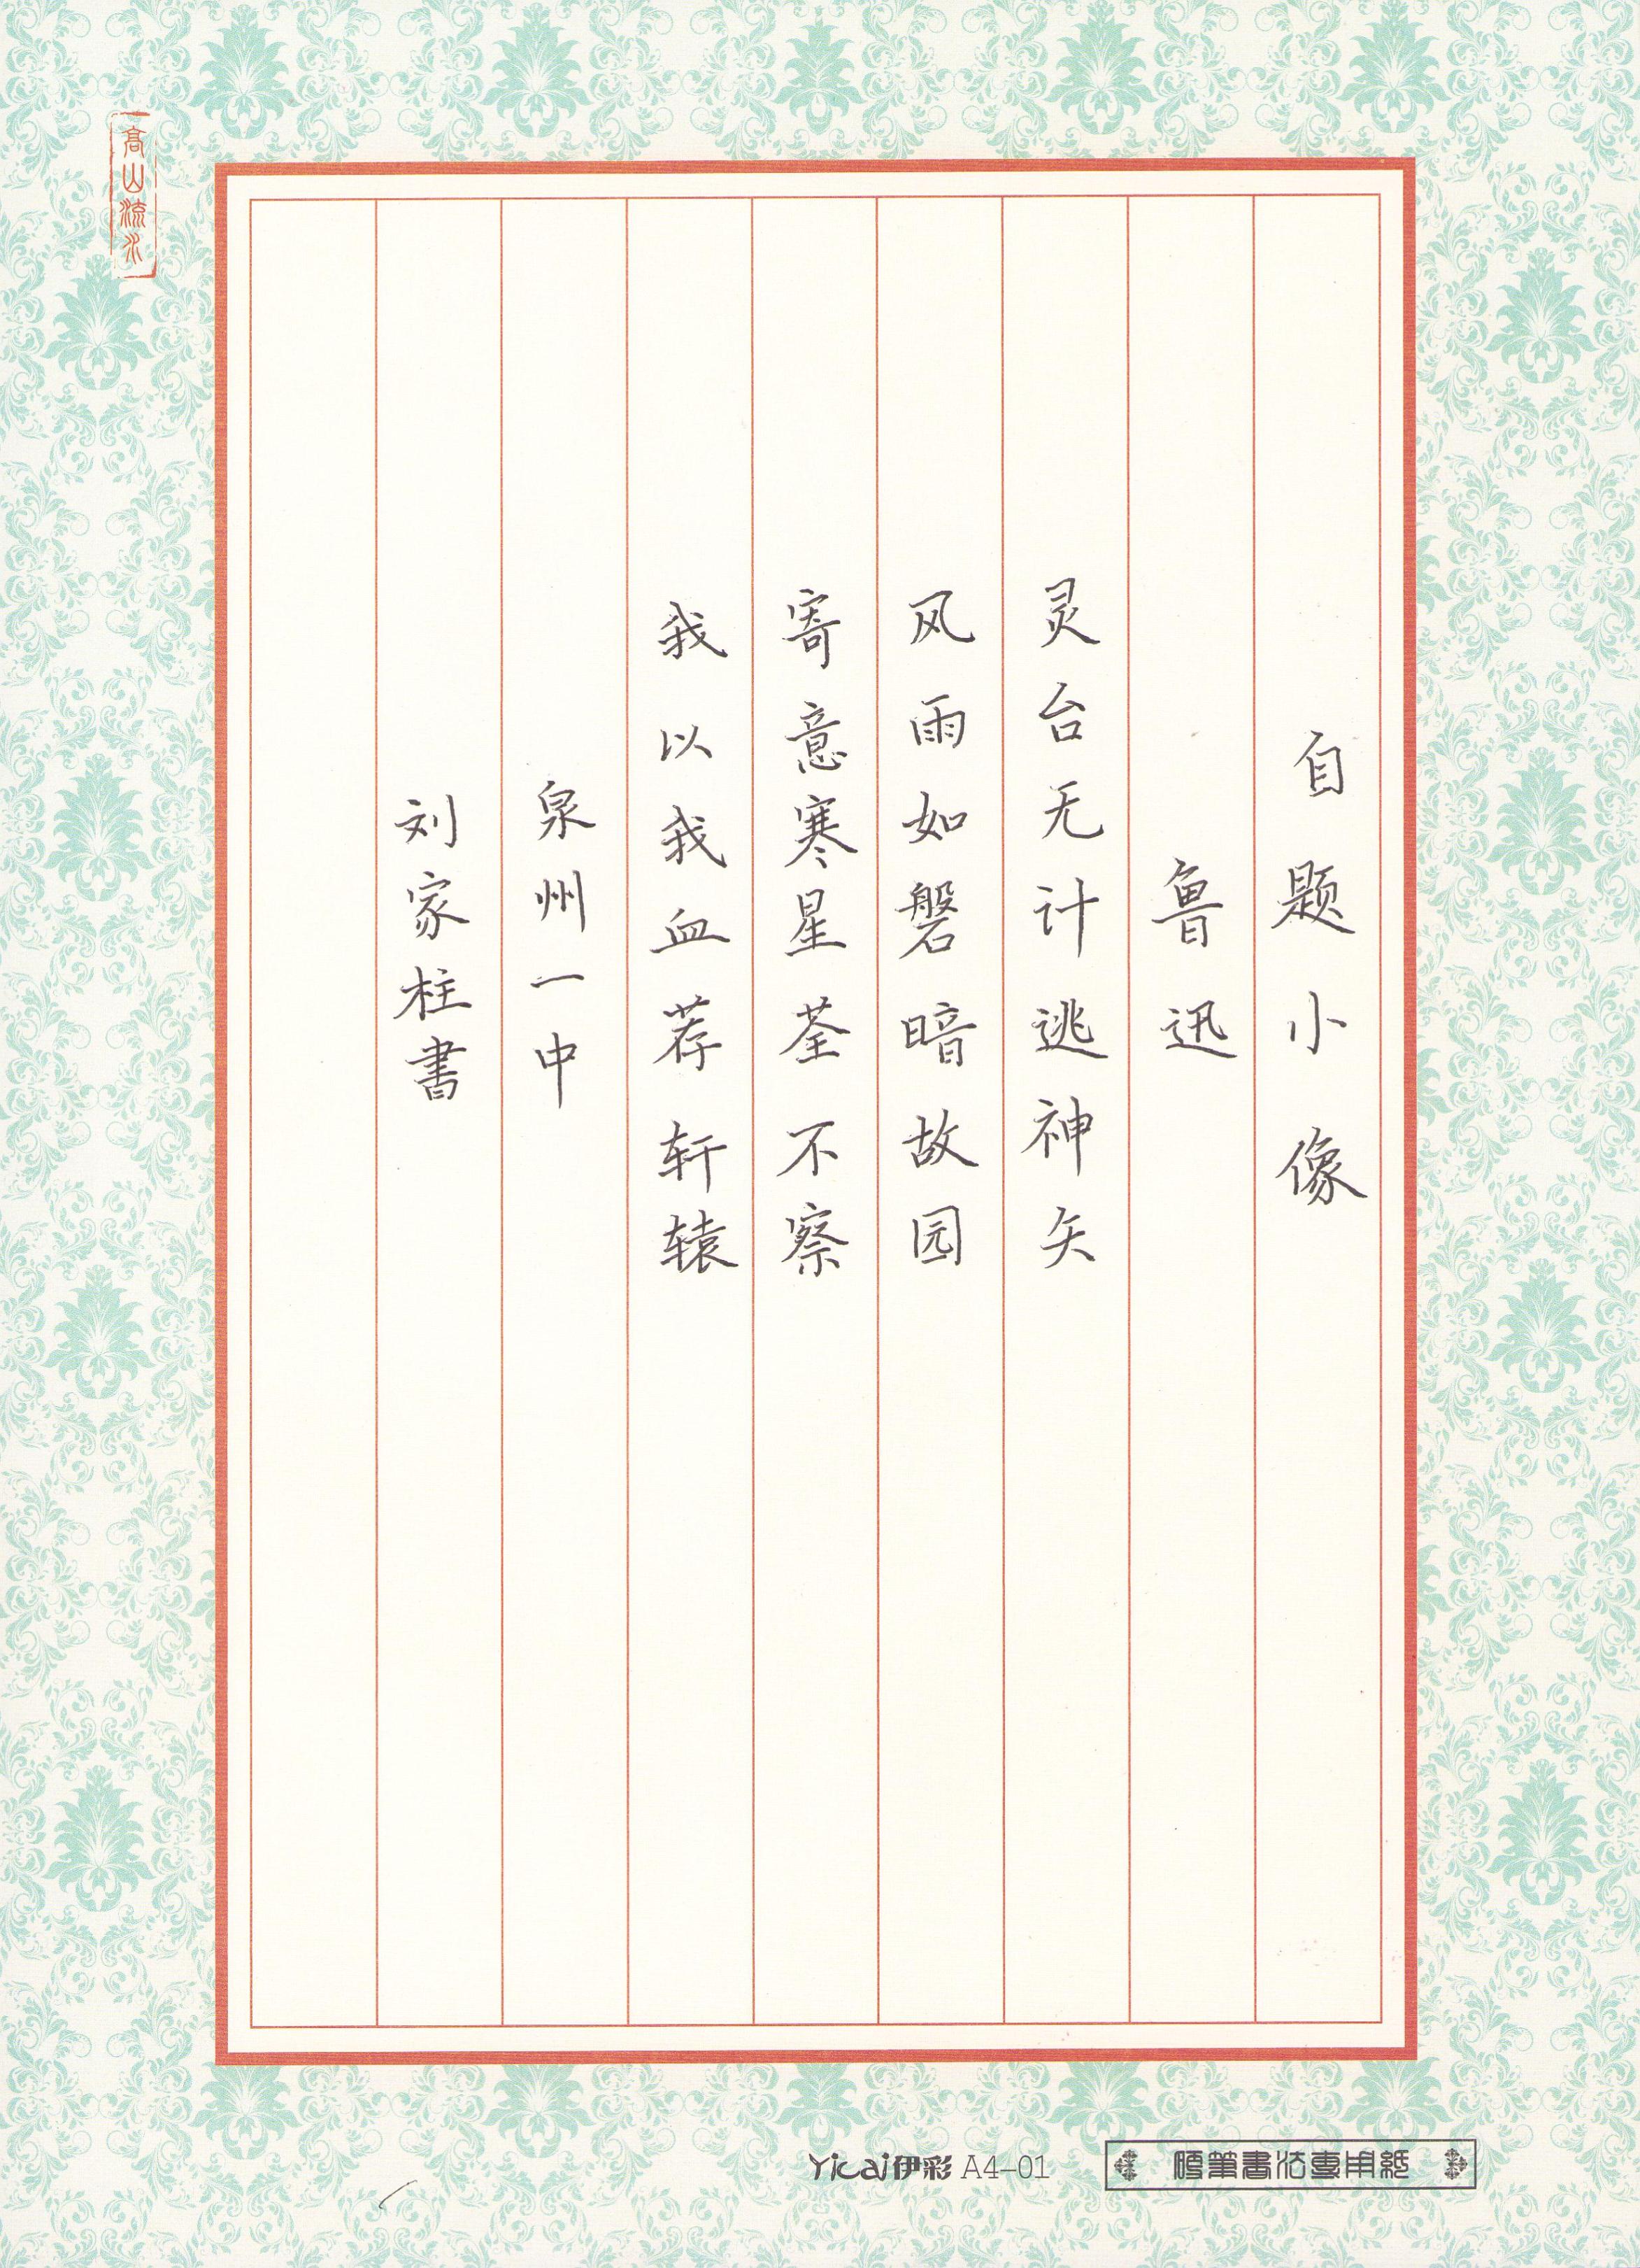 自题小像
鲁迅
灵台无计逃神矢
风雨如磐暗故园
寄意寒星荃不察
我以我血荐轩辕
泉州一中
刘家柱書
高山流水
Yicai伊彩 A4-01
硬筆書法專用紙